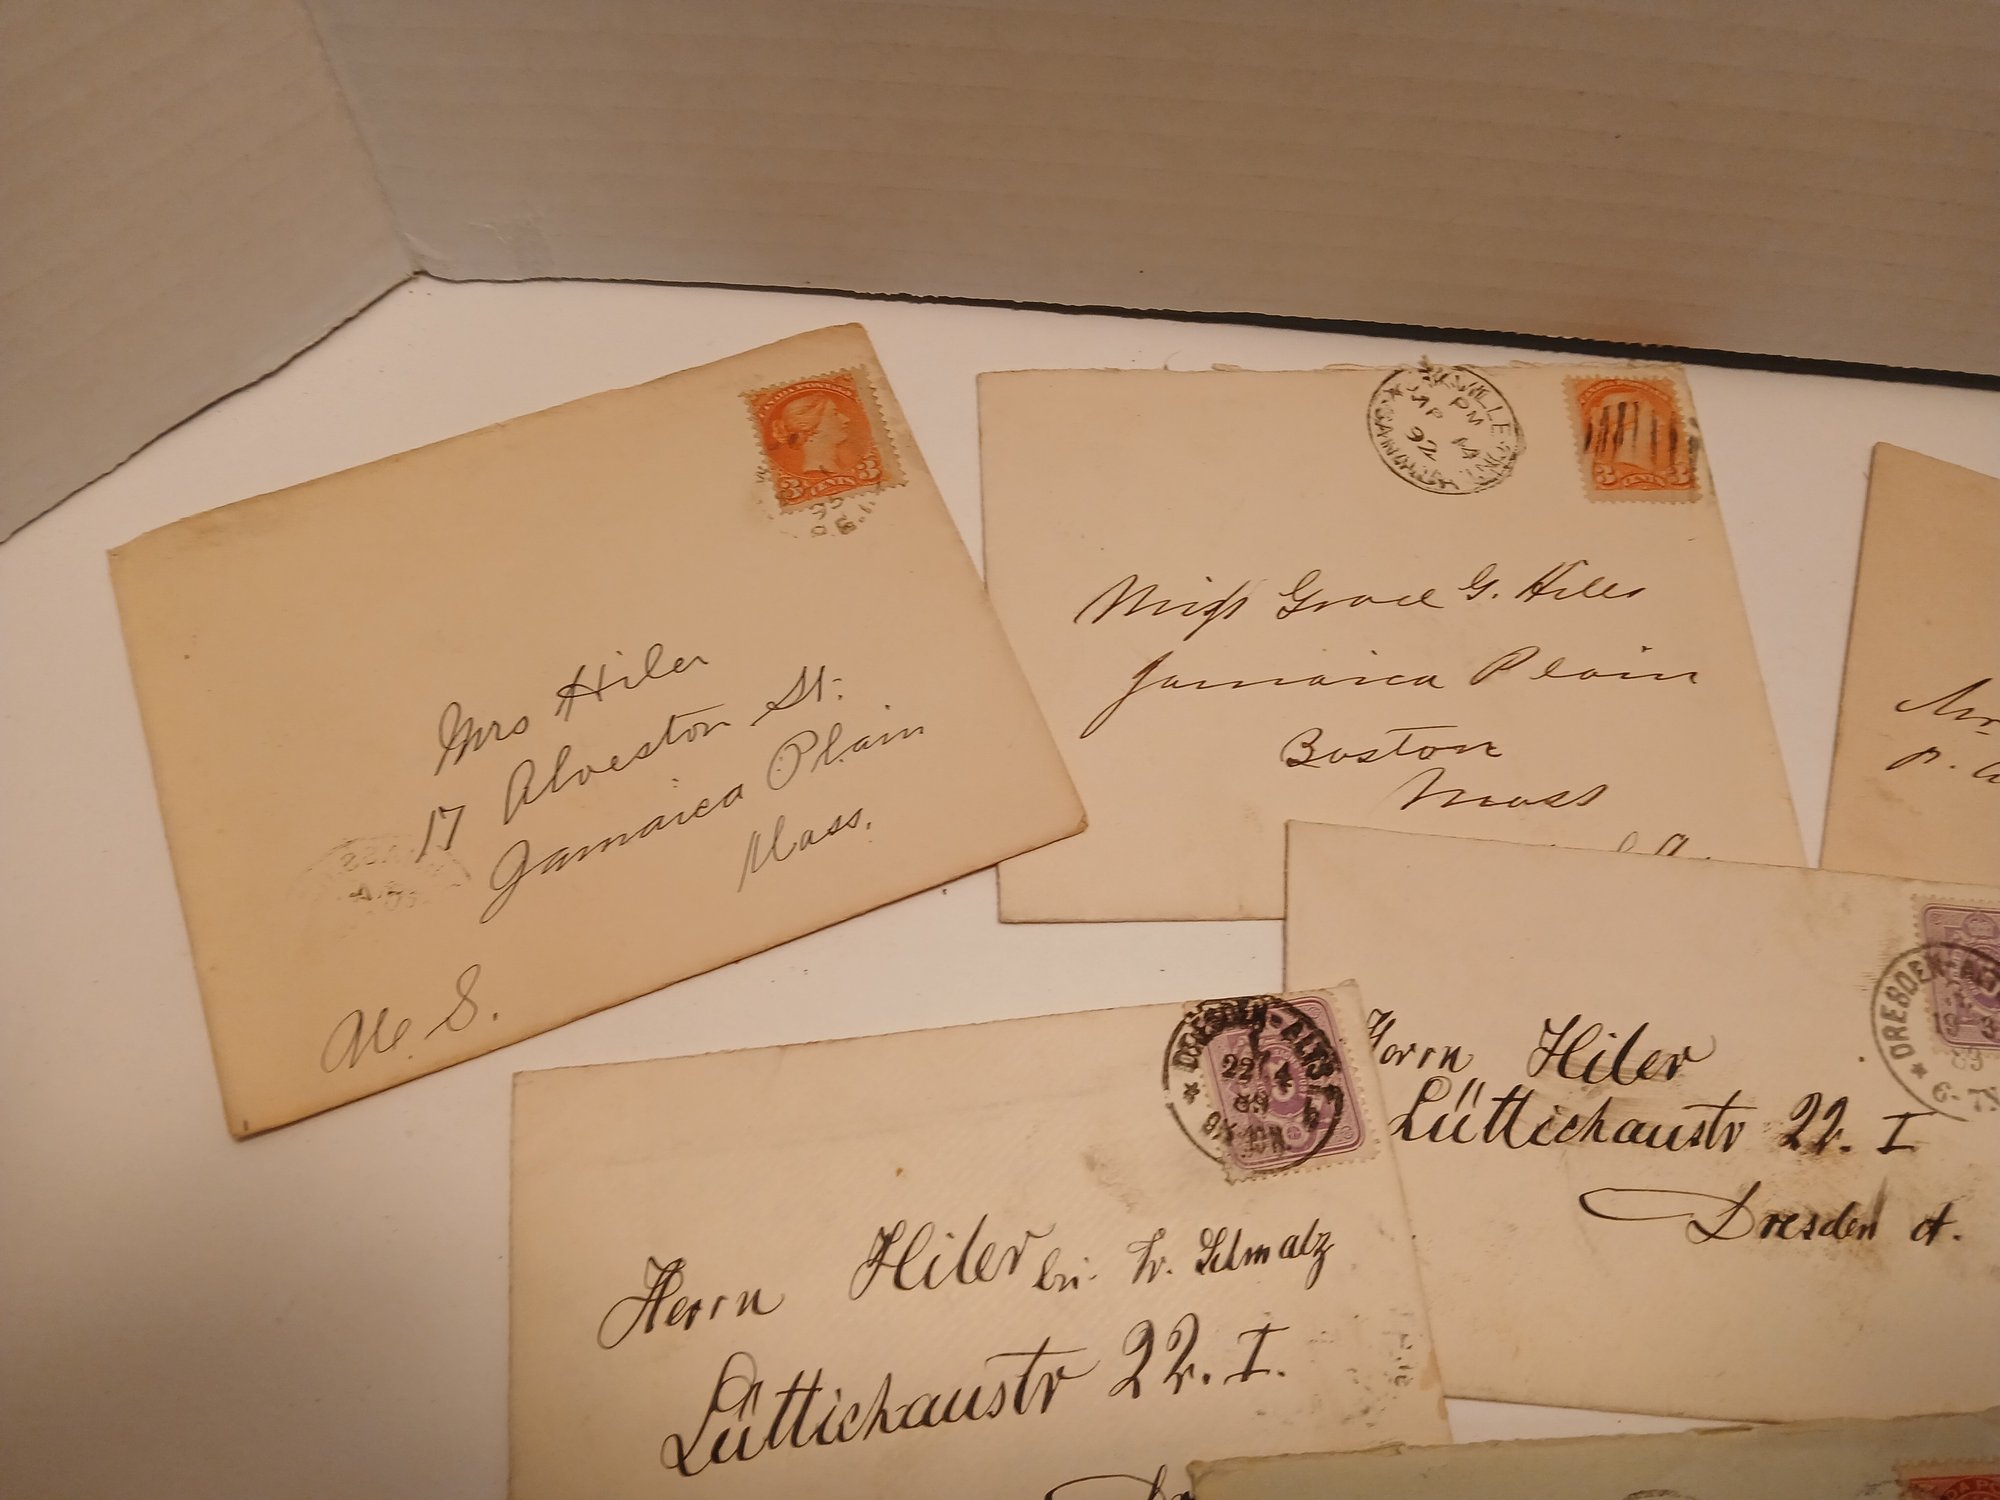 CANADA POSTAGE
3 CENTS 3
Mrs Hiler
17 Alveston St.
Jamaica Plain
Mass.
U. S.
PM
AP 14
92
CANADA
3 CENTS 3
Miss Grace G. Hiller
Jamaica Plain
Boston
Mass
Mr
DRESDEN-ALTST
22 4
89
Herrn Hiler bei Fr. Schmalz
Lüttichaustr 22. I.
DRESDEN-ALT
89
Herrn Hiler
Lüttichaustr 22. I
Dresden A.